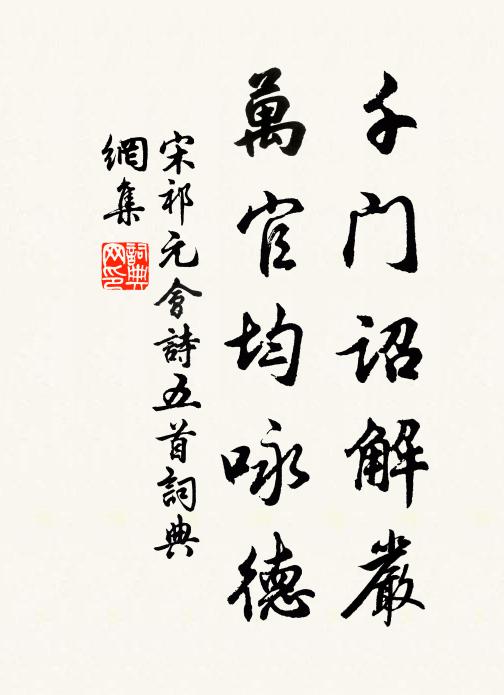 千门詔解嚴
萬官均咏德
宋祁元會詩五首詞典
網集
詞典网印